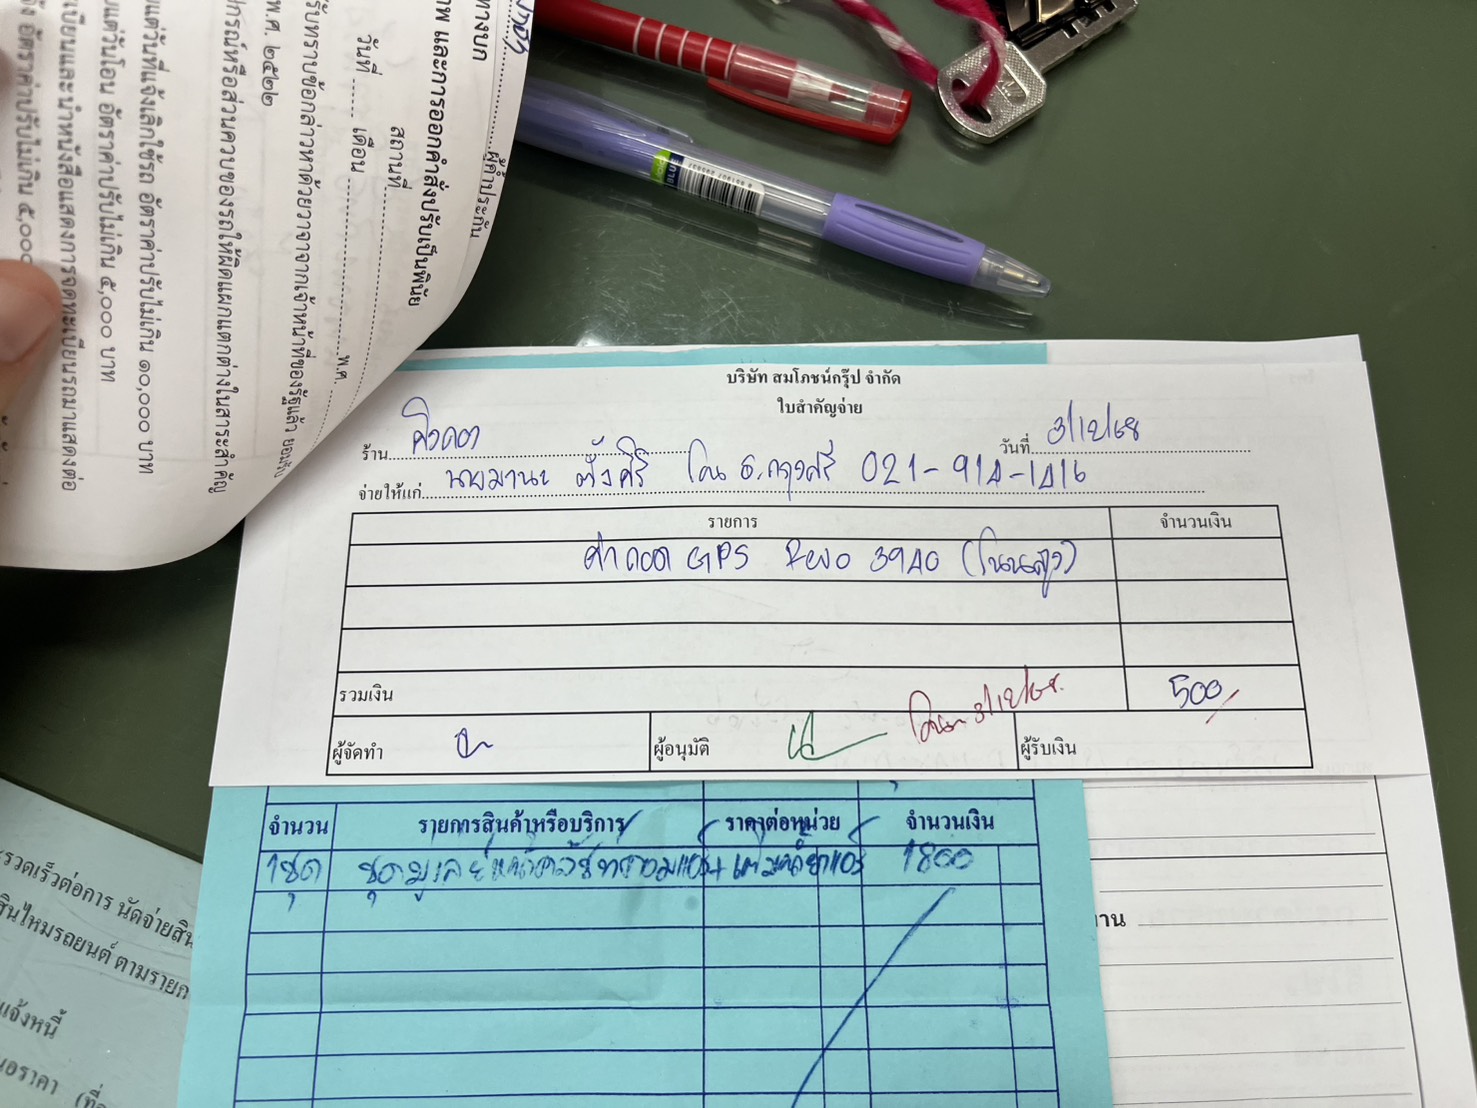 ทางบก
ผู้ค้ำประกัน
ภาพ และการออกคำสั่งปรับเป็นพินัย
สถานที่
วันที่ ...... เดือน ........ พ.ศ.
รับทราบข้อกล่าวหาด้วยวาจาจากเจ้าหน้าที่ของรัฐแล้ว ยอมรับ
พ.ศ. ๒๕๒๒
ปกรณ์หรือส่วนควบของรถให้ผิดแผกแตกต่างในสาระสำคัญ
แต่วันที่แจ้งเลิกใช้รถ อัตราค่าปรับไม่เกิน ๑๐,๐๐๐ บาท
แต่วันโอน อัตราค่าปรับไม่เกิน ๕,๐๐๐ บาท
เบียนและนำหนังสือแสดงการจดทะเบียนรถมาแสดงต่อ
อัตราค่าปรับไม่เกิน ๕,๐๐๐
บริษัท สมโภชน์กรุ๊ป จำกัด
ใบสำคัญจ่าย
ร้าน วันที่ 3/12/68
จ่ายให้แก่ นายมานะ ตั้งศิริ โอน ธ.กรุงศรี 021-914-1416
รายการ จำนวนเงิน
ค่าถอด GPS Revo 3940 (โนนสูง)
รวมเงิน 500
ผู้จัดทำ ผู้อนุมัติ โอน 3/12/68. ผู้รับเงิน
จำนวน รายการสินค้าหรือบริการ ราคาต่อหน่วย จำนวนเงิน
1ชุด 1800
รวดเร็วต่อการ นัดจ่ายสิน
สินไหมรถยนต์ ตามราย
แจ้งหนี้
นอราคา (ที่